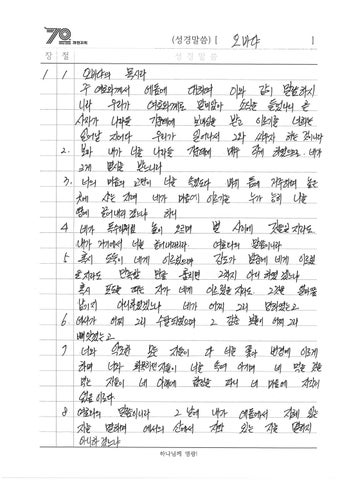 70 (성경말씀) [ 오바댜 ]
장 절 성경말씀
1 1 오바댜의 묵시라
주 여호와께서 에돔에 대하여 이와 같이 말씀하시
니라 우리가 여호와께로 말미암아 소식을 들었나니 곧
사자가 나라들 가운데에 보내심을 받고 이르기를 너희는
일어날 지어다 우리가 일어나서 그와 싸우자 하는 것이니라
2. 보라 내가 너를 나라들 가운데에 매우 작게 하였으므로 네가
크게 멸시를 받느니라
3. 너의 마음의 교만이 너를 속였도다 바위 틈에 거주하며 높은
곳에 사는 자여 네가 마음에 이르기를 누가 능히 나를
땅에 끌어내리겠느냐 하니
4 네가 독수리처럼 높이 오르며 별 사이에 깃들일지라도
내가 거기에서 너를 끌어내리리라 여호와의 말씀이니라
5 혹시 도둑이 네게 이르렀으며 강도가 밤중에 네게 이르렀
을지라도 만족할 만큼 훔치면 그치지 아니 하였겠느냐
혹시 포도를 따는 자가 네게 이르렀을지라도 그것을 얼마쯤
남기지 아니하였겠느냐 네가 어찌 그리 망하였는고
6 에서가 어찌 그리 수탈되었으며 그 감춘 보물이 어찌 그리
빼앗겼는고
7 너와 약조한 모든 자들이 다 너를 쫓아 변경에 이르게
하며 너와 화목하던 자들이 너를 속여 이기며 네 먹을 것을
먹는 자들이 네 아래에 함정을 파니 네 마음에 지각이
없음이로다
8 여호와의 말씀이니라 그 날에 내가 에돔에서 지혜 있는
자를 멸하며 에서의 산에서 지각 있는 자를 멸하지
아니하겠느냐
하나님께 영광!